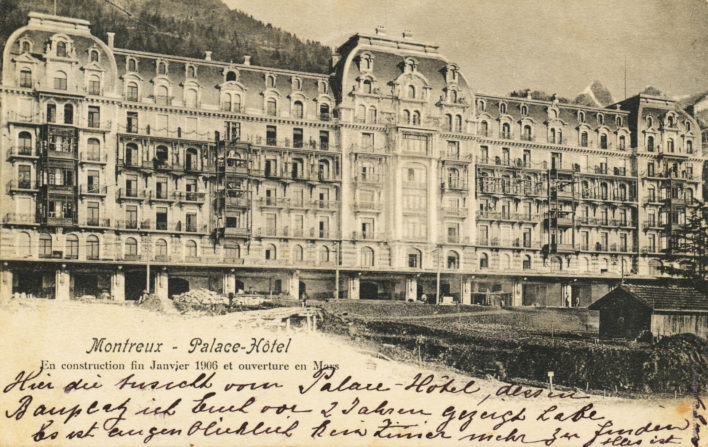 Montreux - Palace-Hôtel
En construction fin Janvier 1906 et ouverture en Mars
Hier die Ansicht vom Palace-Hôtel, dessen
Bauplatz ich Euch vor 2 Jahren gezeigt habe
Es ist augenblicklich kein Zimmer mehr zu finden